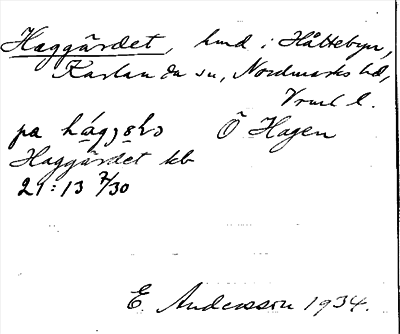 Haggärdet, hmd i Håttebyn,
Karlanda sn, Nordmarks hd,
Vrml l.
pa Ö Hagen
Haggärdet kb
21:13 7/30
E. Andersson 1934.